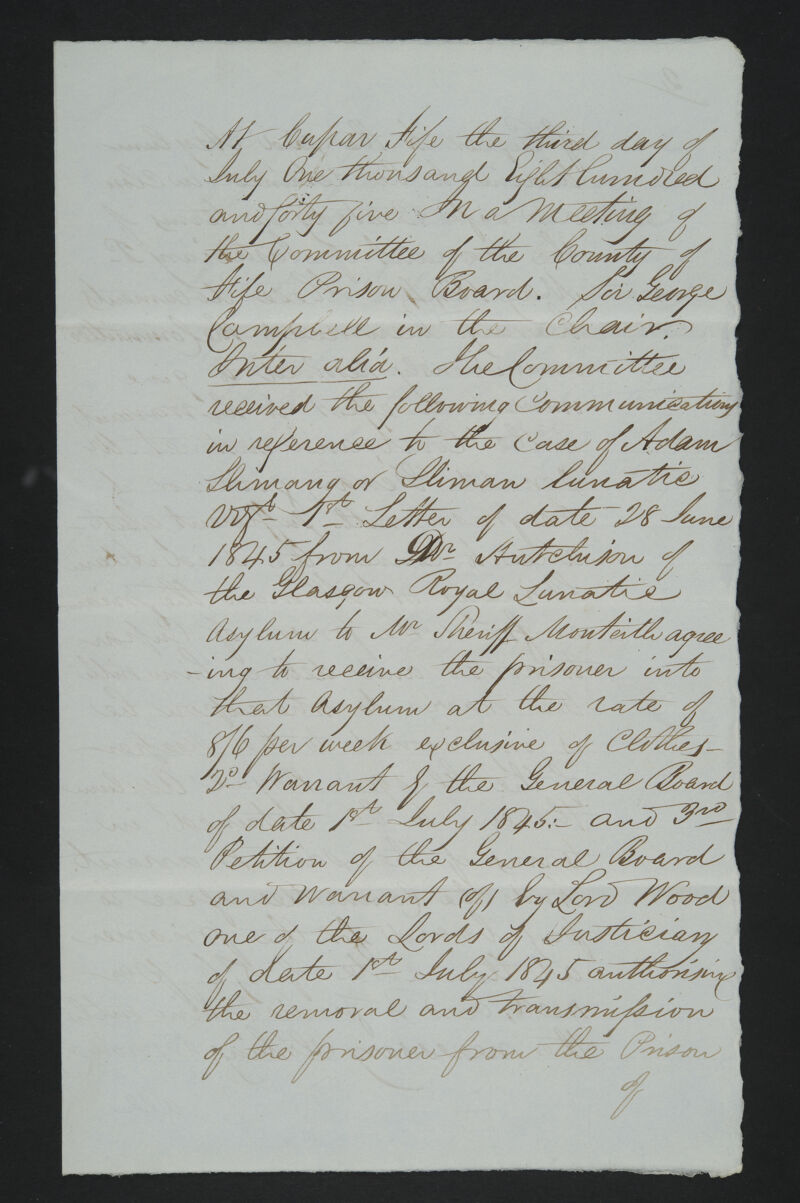 At Cupar Fife the third day of
July One thousand Eight hundred
and forty five In a Meeting of
the Committee of the County of
Fife Prison Board. Sir George
Campbell in the Chair.
Inter alia. The Committee
received the following Communications
in reference to the Case of Adam
or Sliman lunatic
Vizt. 1st Letter of date 28 June
1845 from Dr Hutchison of
the Glasgow Royal Lunatic
Asylum to Mr Sheriff Monteith agree
-ing to receive the prisoner into
that Asylum at the rate of
8/6 per week exclusive of Clothes-
2o Warrant of the General Board
of date 1st July 1845:- and 3rd
Petition of the General Board
and Warrant (of) by Lord Wood
one of the Lords of Justiciary
of date 1st July 1845 authorising
the removal and transmission
of the prisoner from the Prison
of